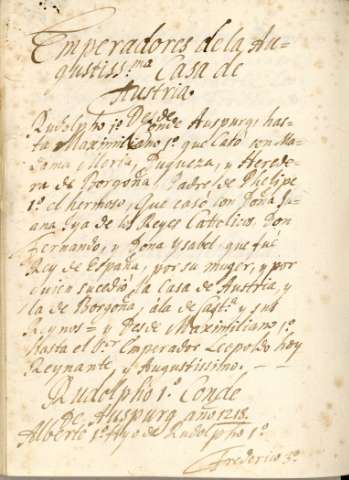 Emperadores de la Au=
gustiss.ma Casa de
Austria.
Rudolpho 1.o Desde
Conde Auspurg, has=
ta Maximiliano 1.o que Casó con Ma=
dama Maria, Duqueza, y Herede=
ra de Borgoña, Padre de Phelipe
1.o el hermoso, que caso con Doña Ju=
ana Yja de los Reyes Catolicos, Don
Fernando, y Dona Ysabel, que fué
Rey de España, por su muger, y por
quien sucedió la Casa de Austria, y
la de Borgoña, á la de Cast.a y sus
Reynos= y Desde Maximiliano 1.o
hasta el Emperador Leopoldo hoy
Reynante, y Augustissimo. - -
Rudolpho 1.o Conde
de Auspurg año 1218.
Alberto 1.o Hyo de Rudolpho 1.o
Frederico 3.o